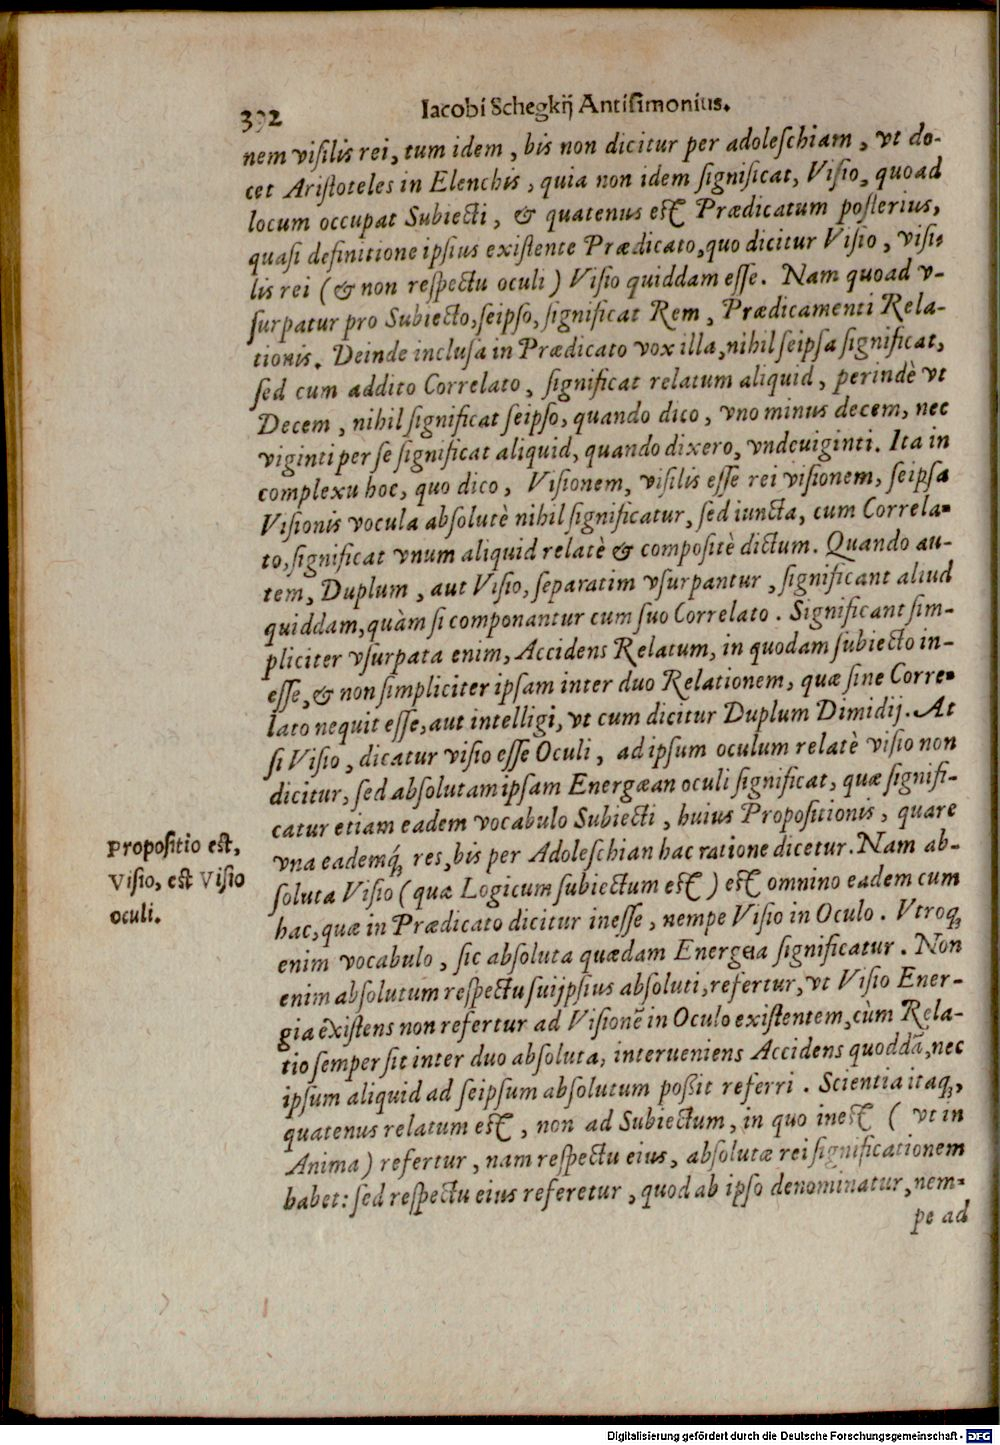 392
Iacobi Schegkij Antisimonius.
nem visilis rei, tum idem, bis non dicitur per adoleschiam, vt do-
cet Aristoteles in Elenchis, quia non idem significat, Visio, quoad
locum occupat Subiecti, & quatenus est Prædicatum posterius,
quasi definitione ipsius existente Prædicato, quo dicitur Visio, visi-
lis rei (& non respectu oculi) Visio quiddam esse. Nam quoad v-
surpatur pro Subiecto, seipso, significat Rem, Prædicamenti Rela-
tionis. Deinde inclusa in Prædicato vox illa, nihil seipsa significat,
sed cum addito Correlato, significat relatum aliquid, perindè vt
Decem, nihil significat seipso, quando dico, vno minus decem, nec
viginti per se significat aliquid, quando dixero, vndeuiginti. Ita in
complexu hoc, quo dico, Visionem, visilis esse rei visionem, seipsa
Visionis vocula absolutè nihil significatur, sed iuncta, cum Correla-
to, significat vnum aliquid relatè & compositè dictum. Quando au-
tem, Duplum, aut Visio, separatim vsurpantur, significant aliud
quiddam, quàm si componantur cum suo Correlato. Significant sim-
pliciter vsurpata enim, Accidens Relatum, in quodam subiecto in-
esse, & non simpliciter ipsam inter duo Relationem, quæ sine Corre-
lato nequit esse, aut intelligi, vt cum dicitur Duplum Dimidij. At
si Visio, dicatur visio esse Oculi, ad ipsum oculum relatè visio non
dicitur, sed absolutam ipsam Energæan oculi significat, quæ signifi-
catur etiam eadem vocabulo Subiecti, huius Propositionis, quare
vna eademq́; res, bis per Adoleschian hac ratione dicetur. Nam ab-
soluta Visio (quæ Logicum subiectum est) est omnino eadem cum
hac, quæ in Prædicato dicitur inesse, nempe Visio in Oculo. Vtroq;
enim vocabulo, sic absoluta quædam Energeia significatur. Non
enim absolutum respectu suiipsius absoluti, refertur, vt Visio Ener-
gia existens non refertur ad Visionē in Oculo existentem, cùm Rela-
tio semper sit inter duo absoluta, interueniens Accidens quoddā, nec
ipsum aliquid ad seipsum absolutum poßit referri. Scientia itaq;,
quatenus relatum est, non ad Subiectum, in quo inest (vt in
Anima) refertur, nam respectu eius, absolutæ rei significationem
habet: sed respectu eius referetur, quod ab ipso denominatur, nem-
pe ad
Propositio est,
Visio, est Visio
oculi.
Digitalisierung gefördert durch die Deutsche Forschungsgemeinschaft - DFG